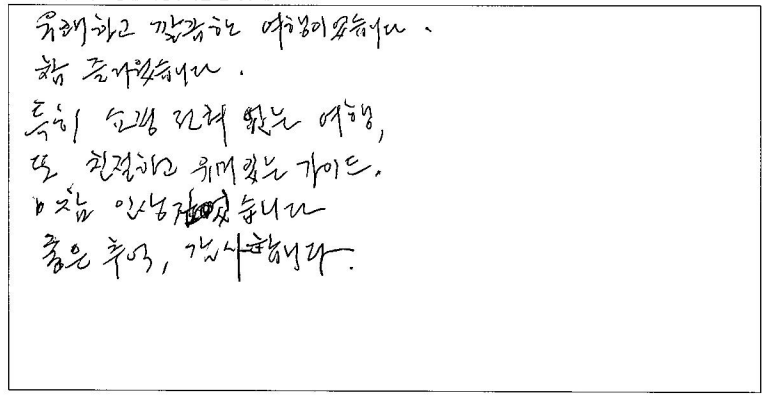 유쾌하고 깔끔한 여행이었습니다.
참 즐거웠습니다.
특히 쇼핑 전혀 없는 여행,
또 친절하고 유머있는 가이드.
참 인상적이었습니다
좋은 추억, 감사합니다.